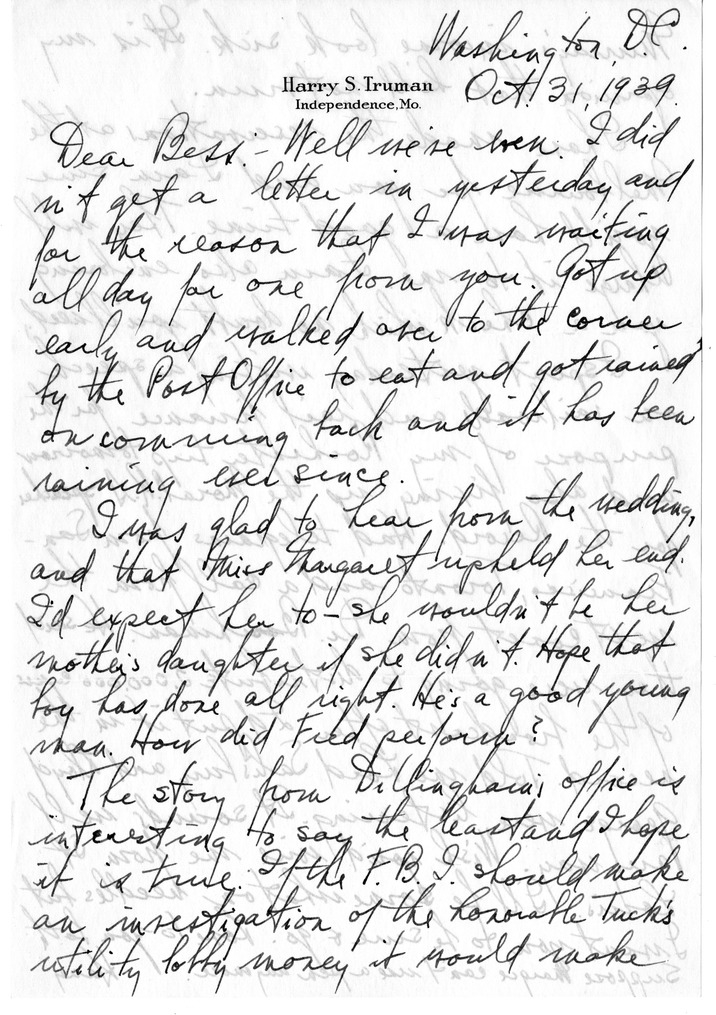 Washington, D.C.
Harry S. Truman
Independence, Mo.
Oct. 31, 1939.
Dear Bess:- Well we're even. I did
n't get a letter in yesterday and
for the reason that I was waiting
all day for one from you. Got up
early and walked over to the corner
by the Post Office to eat and got rained
on comming back and it has been
raining ever since.
I was glad to hear from the wedding,
and that Miss Margaret upheld her end.
I'd expect her to - she wouldn't be her
mother's daughter if she didn't. Hope that
boy has done all right. He's a good young
man. How did Fred perform?
The story from Dillingham's office is
interesting to say the least and I hope
it is true. If the F.B.I. should make
an investigation of the honorable Tuck's
utility lobby money it would make